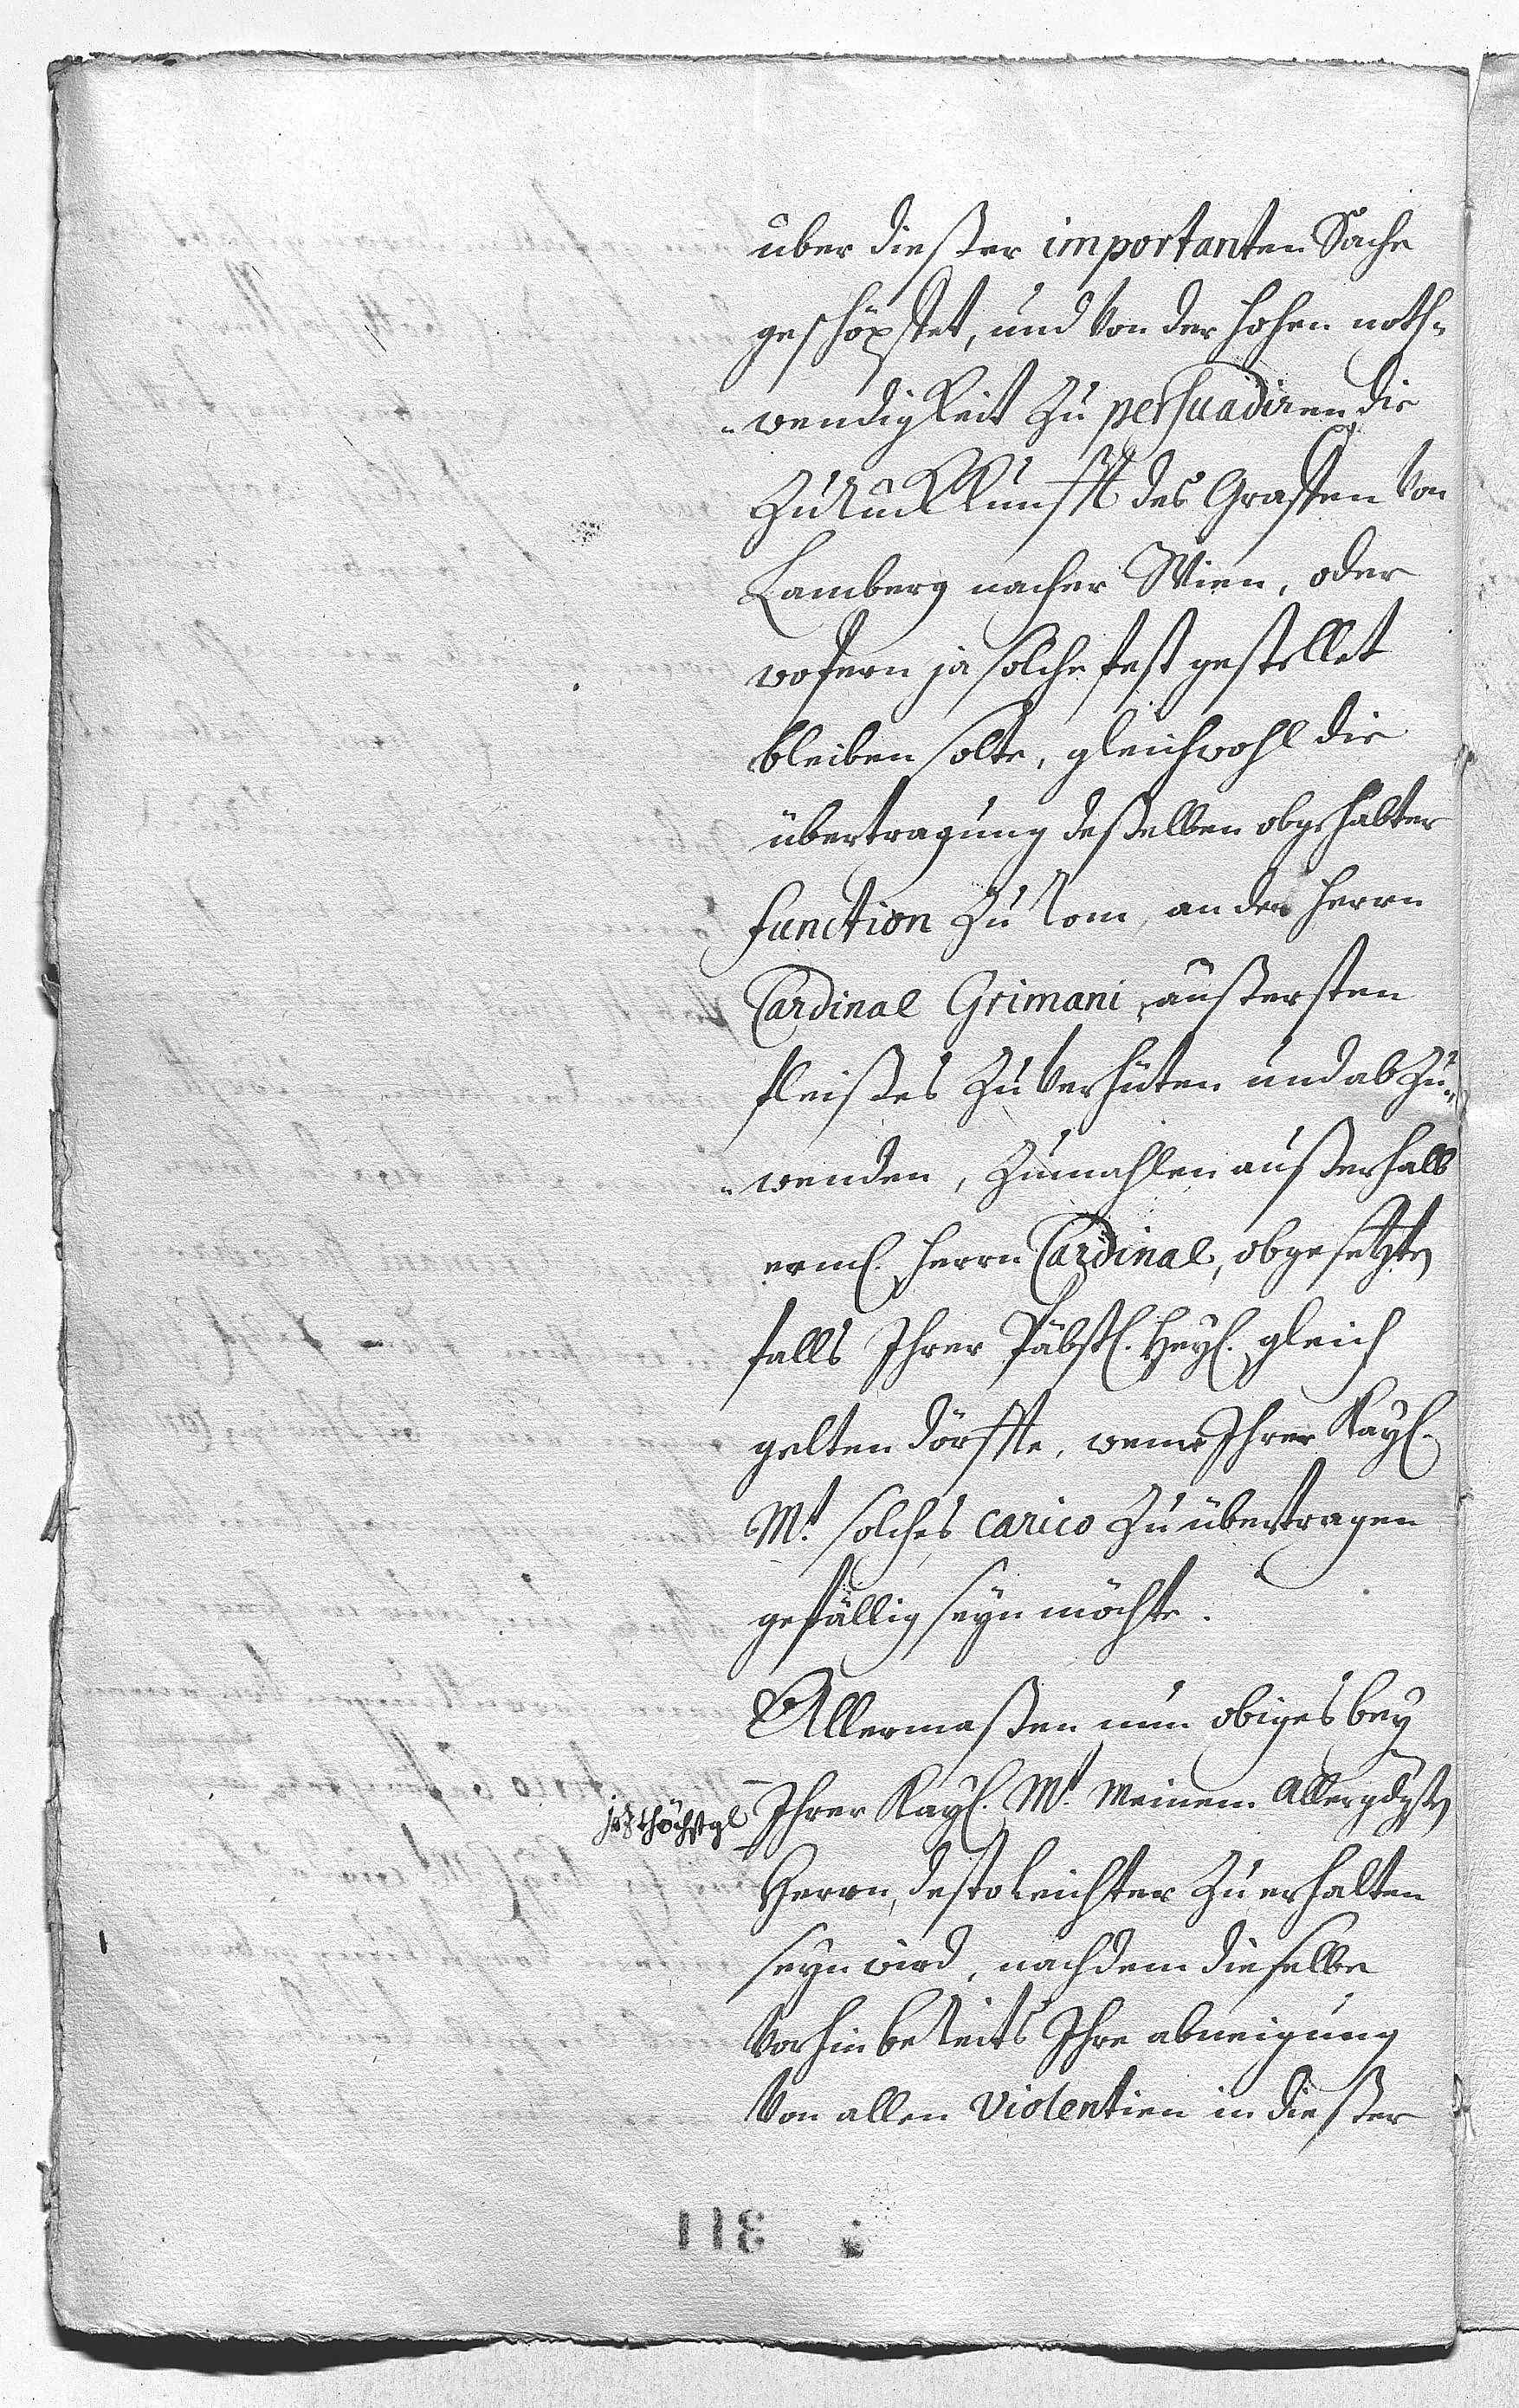 über dießer importanten Sache
geschöpftet, und von der hohen noth-
-wendigkeit zu persuadiren die
Zurückkunfft des Graffen von
Lamberg nacher Wien, oder
wofern ja solche fest gestellet
bleiben solte, gleichwohl die
übertragung deßelben obgehabter
function zu Rom, an den Herrn
Cardinal Grimani, äußersten
fleißes zu verhüten und abzu-
-wenden, Zumahlen außerhalb
erml. Herrn Cardinal, obgesetzten
falls Ihrer Päbstl. Heyl. gleich
gelten dörffte, weme Ihrer Kayl.
Mt. solches carico zu übertragen
gefällig seyn möchte.
Allermaßen nun obiges bey
Ihrer Kayl. Mt. Meinem Allergdsten
jetzthöchstgl
Herrn, desto leichter zu erhalten
seyn wird, nachdem dieselbe
vorhin bereits Ihre abneigung
von allen violentien in dießer
311